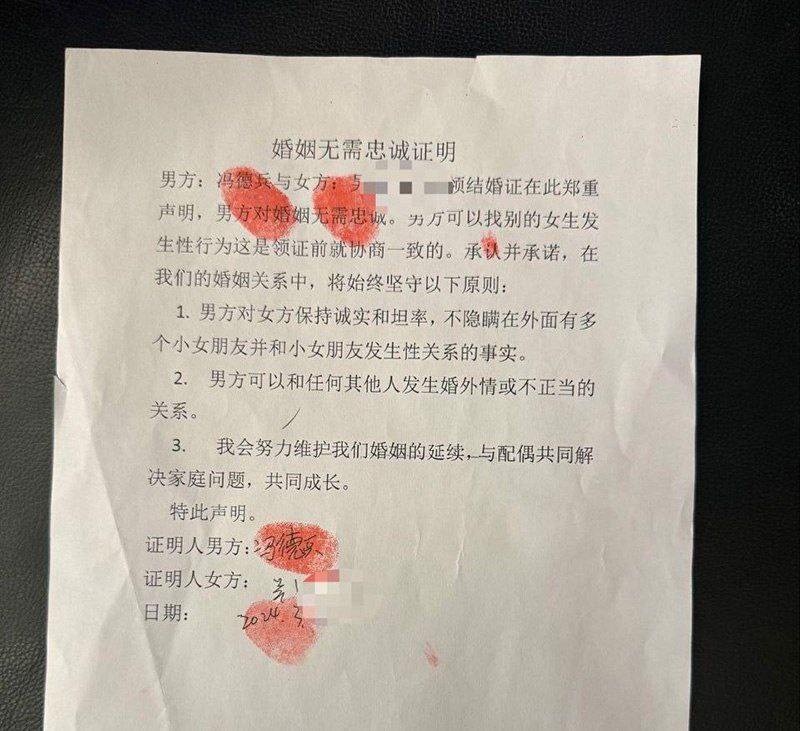 婚姻无需忠诚证明
男方：冯德兵与女方： 领结婚证在此郑重
声明，男方对婚姻无需忠诚。男方可以找别的女生发
生性行为这是领证前就协商一致的。承认并承诺，在
我们的婚姻关系中，将始终坚守以下原则：
1. 男方对女方保持诚实和坦率，不隐瞒在外面有多
个小女朋友并和小女朋友发生性关系的事实。
2. 男方可以和任何其他人发生婚外情或不正当的
关系。
3. 我会努力维护我们婚姻的延续，与配偶共同解
决家庭问题，共同成长。
特此声明。
证明人男方：冯德兵
证明人女方：
日期： 2024.3.